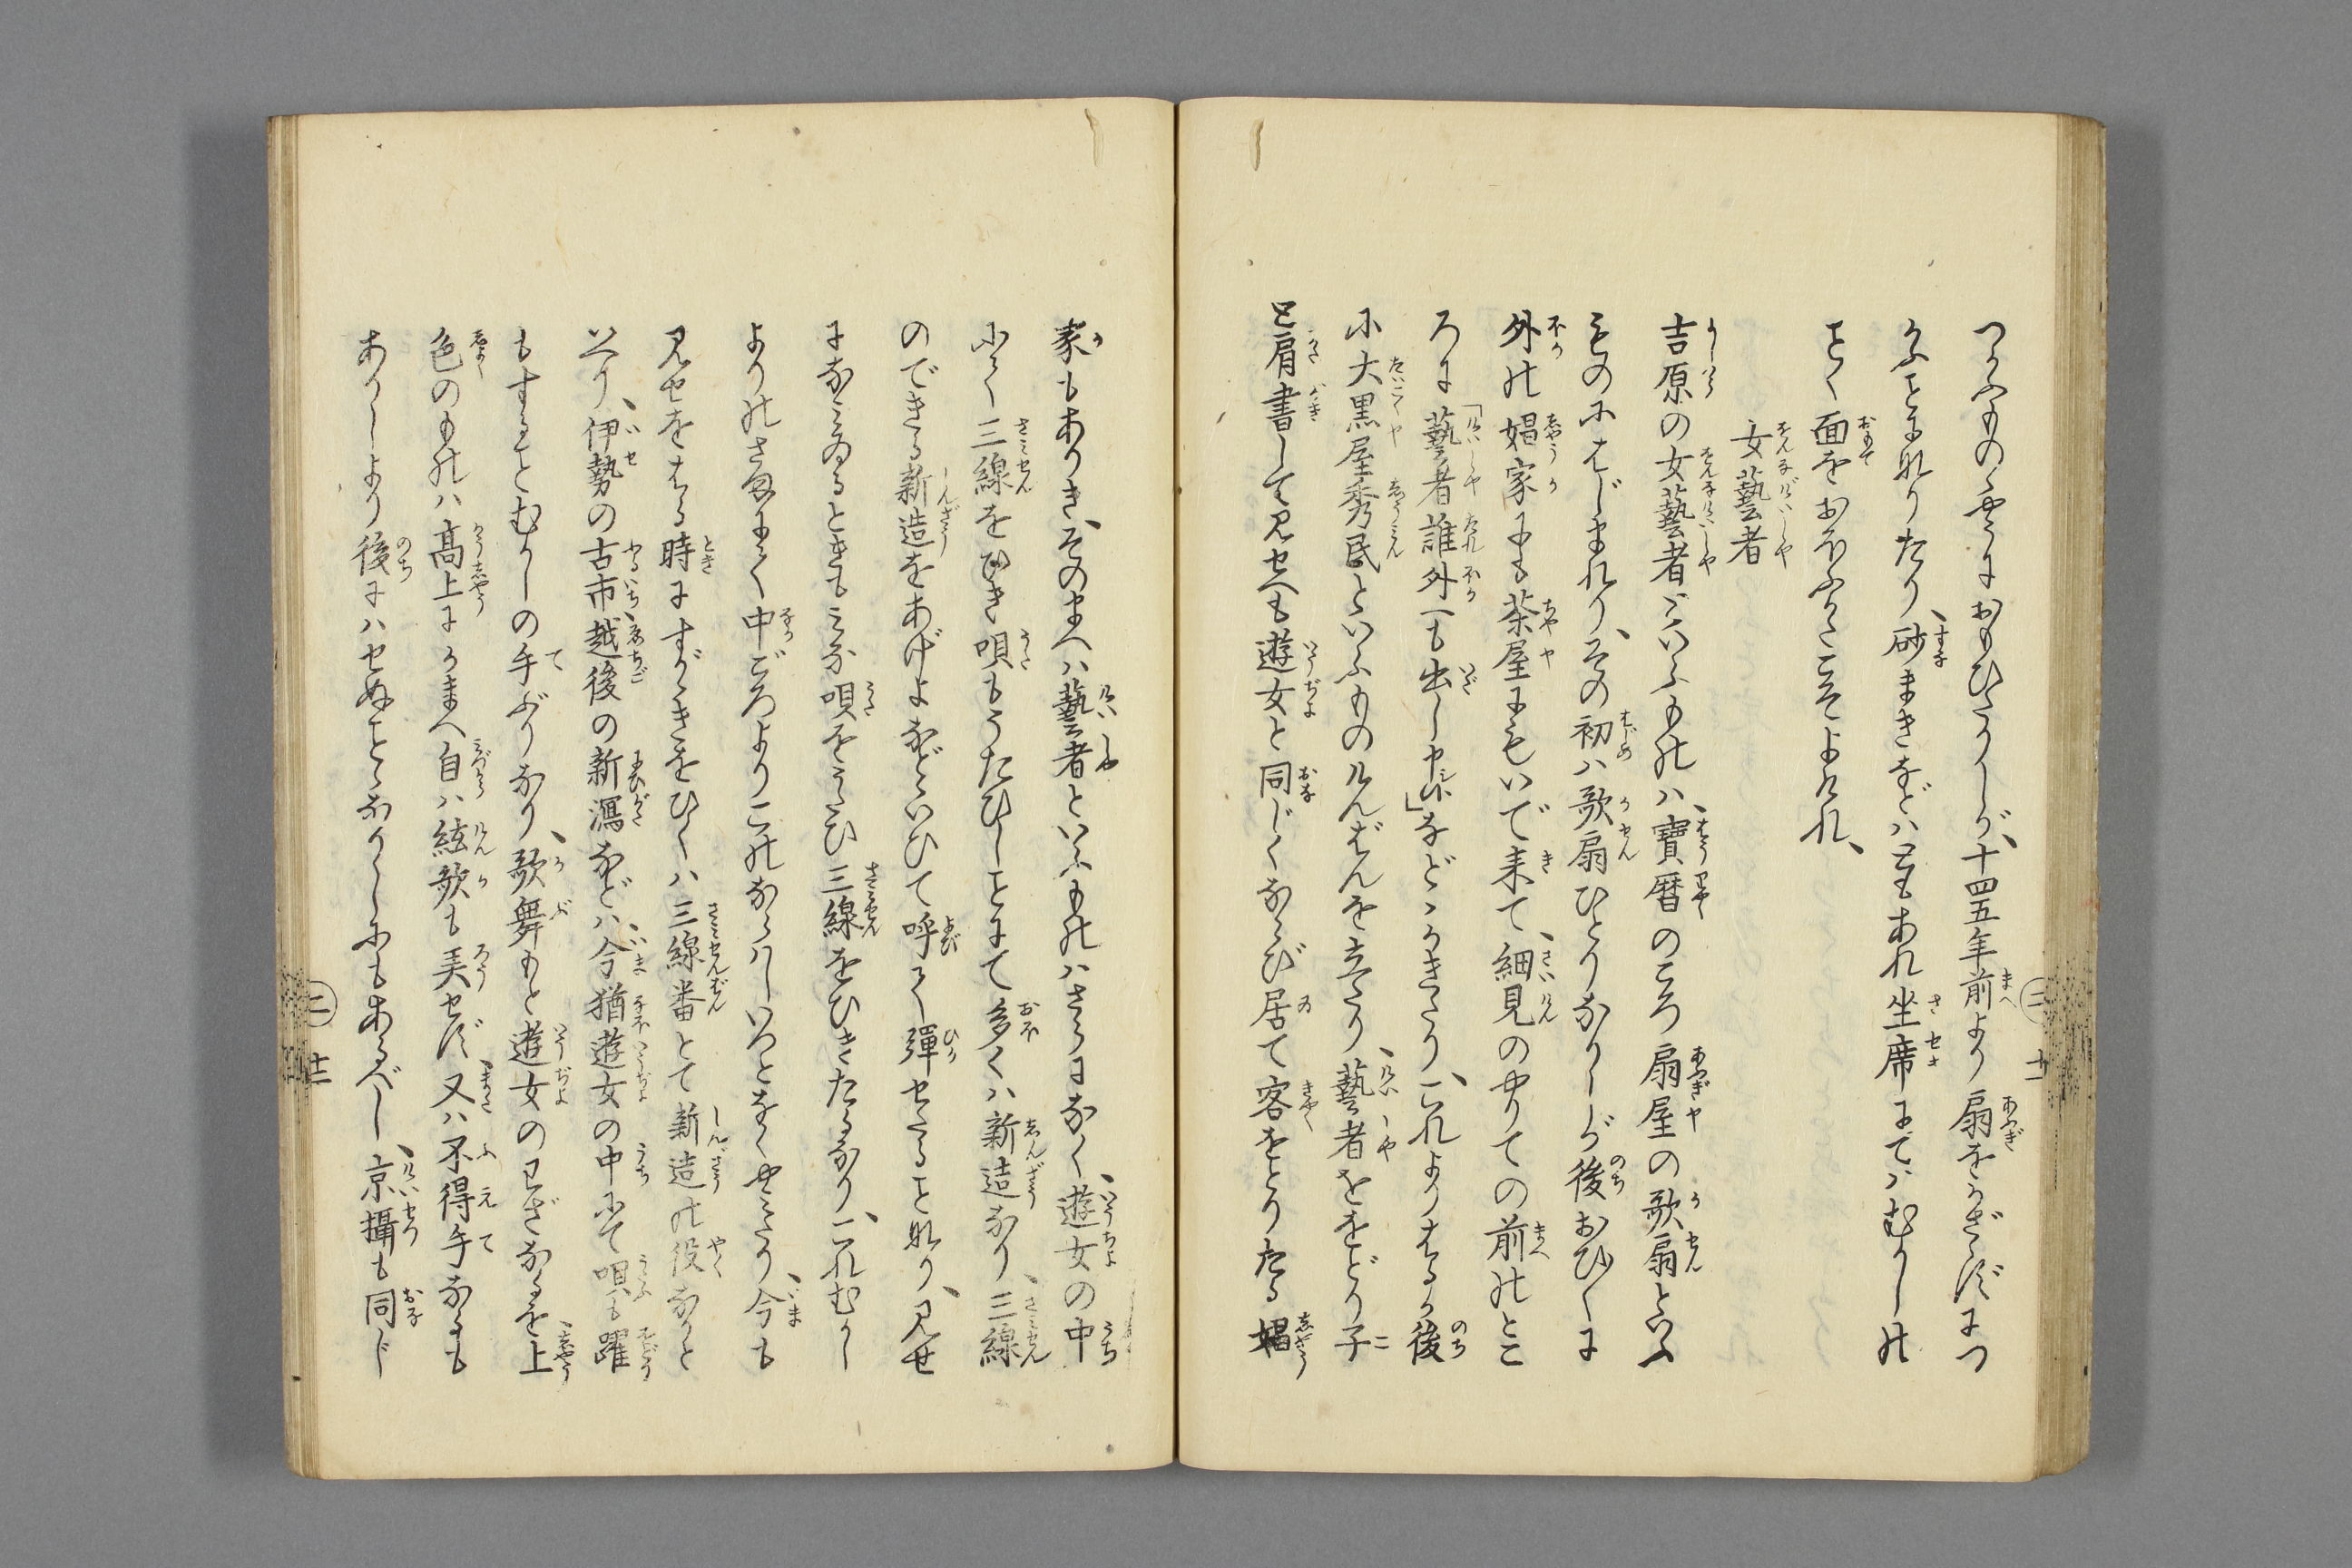 つかふものゝやうにおもひたりしが、十四五年前より扇をかざゝずにつ
かふことになりたり、砂まきなどハともあれ坐席にてハむかしの
ごとく面をおほふかたこそよけれ、
女藝者
吉原の女藝者といふものハ、寶暦のころ扇屋の歌扇といふ
ものにはじまれり、その初ハ歌扇ひとりなりしが後おひ〳〵に
外の娼家にも茶屋にもいで来て、細見のやりての前のとこ
ろに「藝者誰外へも出し申候」などゝかきたり、これよりはるか後
に大黒屋秀民といふものけんばんを立たり、藝者ををどり子
と肩書して見せへも遊女と同じくならび居て客をとりたる娼
家もありき、そのまへハ藝者といふものハさらになく、遊女の中
にて三線をひき唄もうたひしことにて多くハ新造なり、三線
のできる新造をあげよなどゝいひて呼て彈せたることなり、見せ
にならゐるときもミな唄をうたひ三線をひきたるなり、これむかし
よりのさまにて中ごろよりこのならハしいつとなくやミたり、今も
見せをはる時にすがゝきをひくハ三線番とて新造の役なりと
いへり、伊勢の古市、越後の新瀉などハ、今猶遊女の中にて唄も躍
もすることむかしの手ぶりなり、歌舞もと遊女のわざなるを、上
色のものハ高上にかまへ自ハ絃歌も弄せず、又ハ不得手なるも
ありしより後にハせぬことゝなりしにもあるべし、京攝も同じ
二 十一
二 十二